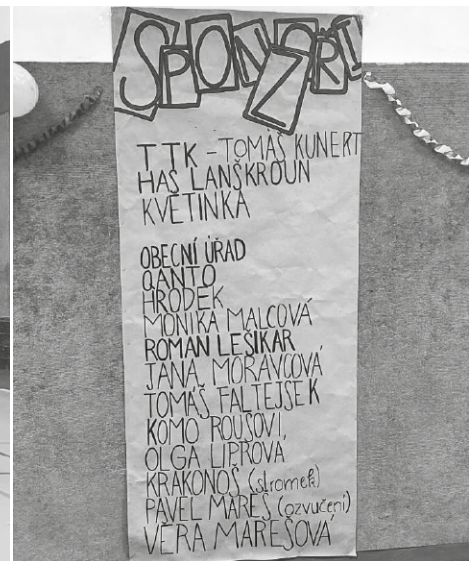 SPONZOŘI
TTK - TOMÁŠ KUNERT
HAS LANŠKROUN
KVĚTINKA
OBECNÍ ÚŘAD
QANTO
HRODEK
MONIKA MALCOVÁ
ROMAN LEŠIKAR
JANA MORAVCOVÁ
TOMÁŠ FALTEJSEK
KOMO ROUSOVI,
OLGA LIPROVA
KRAKONOŠ (stromek)
PAVEL MAREŠ (ozvučení)
VĚRA MAREŠOVÁ